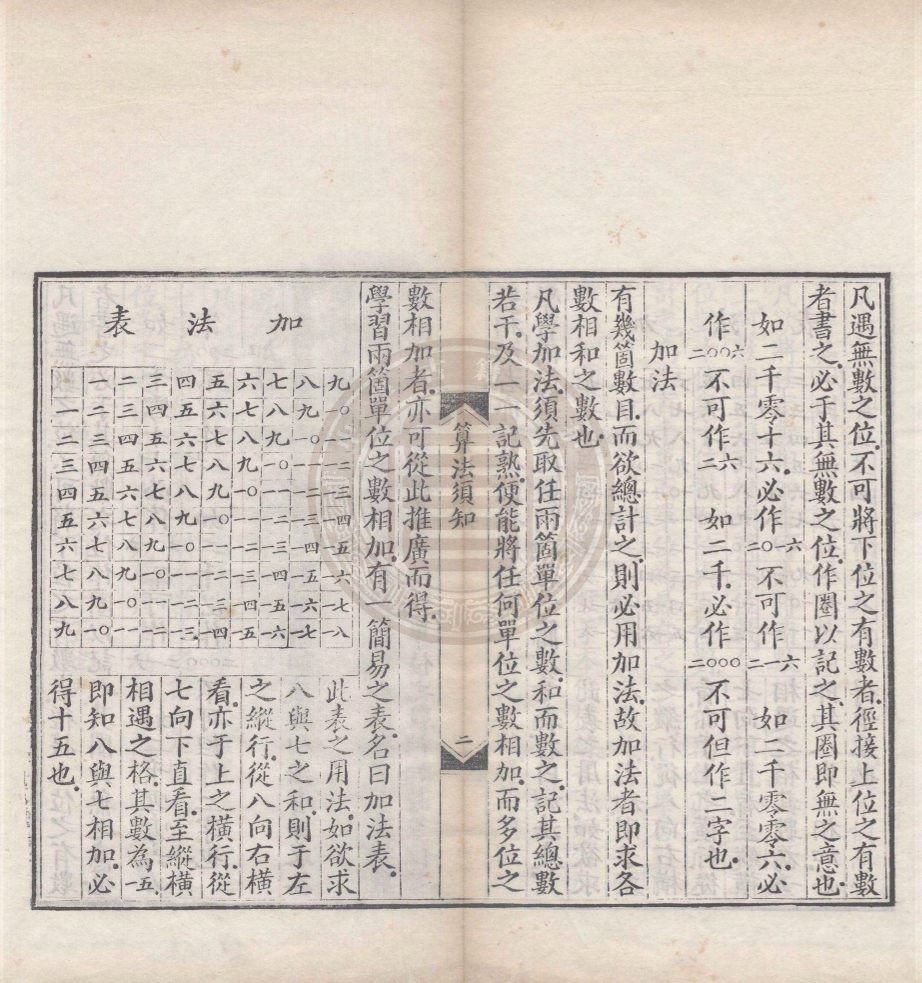 凡遇無數之位不可將下位之有數者徑接上位之有數
者書之必于其無數之位作圈以記之其圈即無之意也
如二千零十六必作二〇一六不可作二一六　如二千零零六必
作二〇〇六不可作二六　如二千必作二〇〇〇不可但作二字也
加法
有幾箇數目而欲總計之則必用加法故加法者即求各
數相和之數也
凡學加法須先取任兩箇單位之數和而數之記其總數
若干及一一記熟便能將任何單位之數相加而多位之
算法須知　二
數相加者亦可從此推廣而得
學習兩箇單位之數相加有一簡易之表名曰加法表
加法表
一 二 三 四 五 六 七 八 九
一 二 三 四 五 六 七 八 九 一〇
二 三 四 五 六 七 八 九 一〇 一一
三 四 五 六 七 八 九 一〇 一一 一二
四 五 六 七 八 九 一〇 一一 一二 一三
五 六 七 八 九 一〇 一一 一二 一三 一四
六 七 八 九 一〇 一一 一二 一三 一四 一五
七 八 九 一〇 一一 一二 一三 一四 一五 一六
八 九 一〇 一一 一二 一三 一四 一五 一六 一七
九 一〇 一一 一二 一三 一四 一五 一六 一七 一八
此表之用法如欲求
八與七之和則于左
之縱行從八向右橫
看亦于上之橫行從
七向下直看至縱橫
相遇之格其數為一五
即知八與七相加必
得十五也